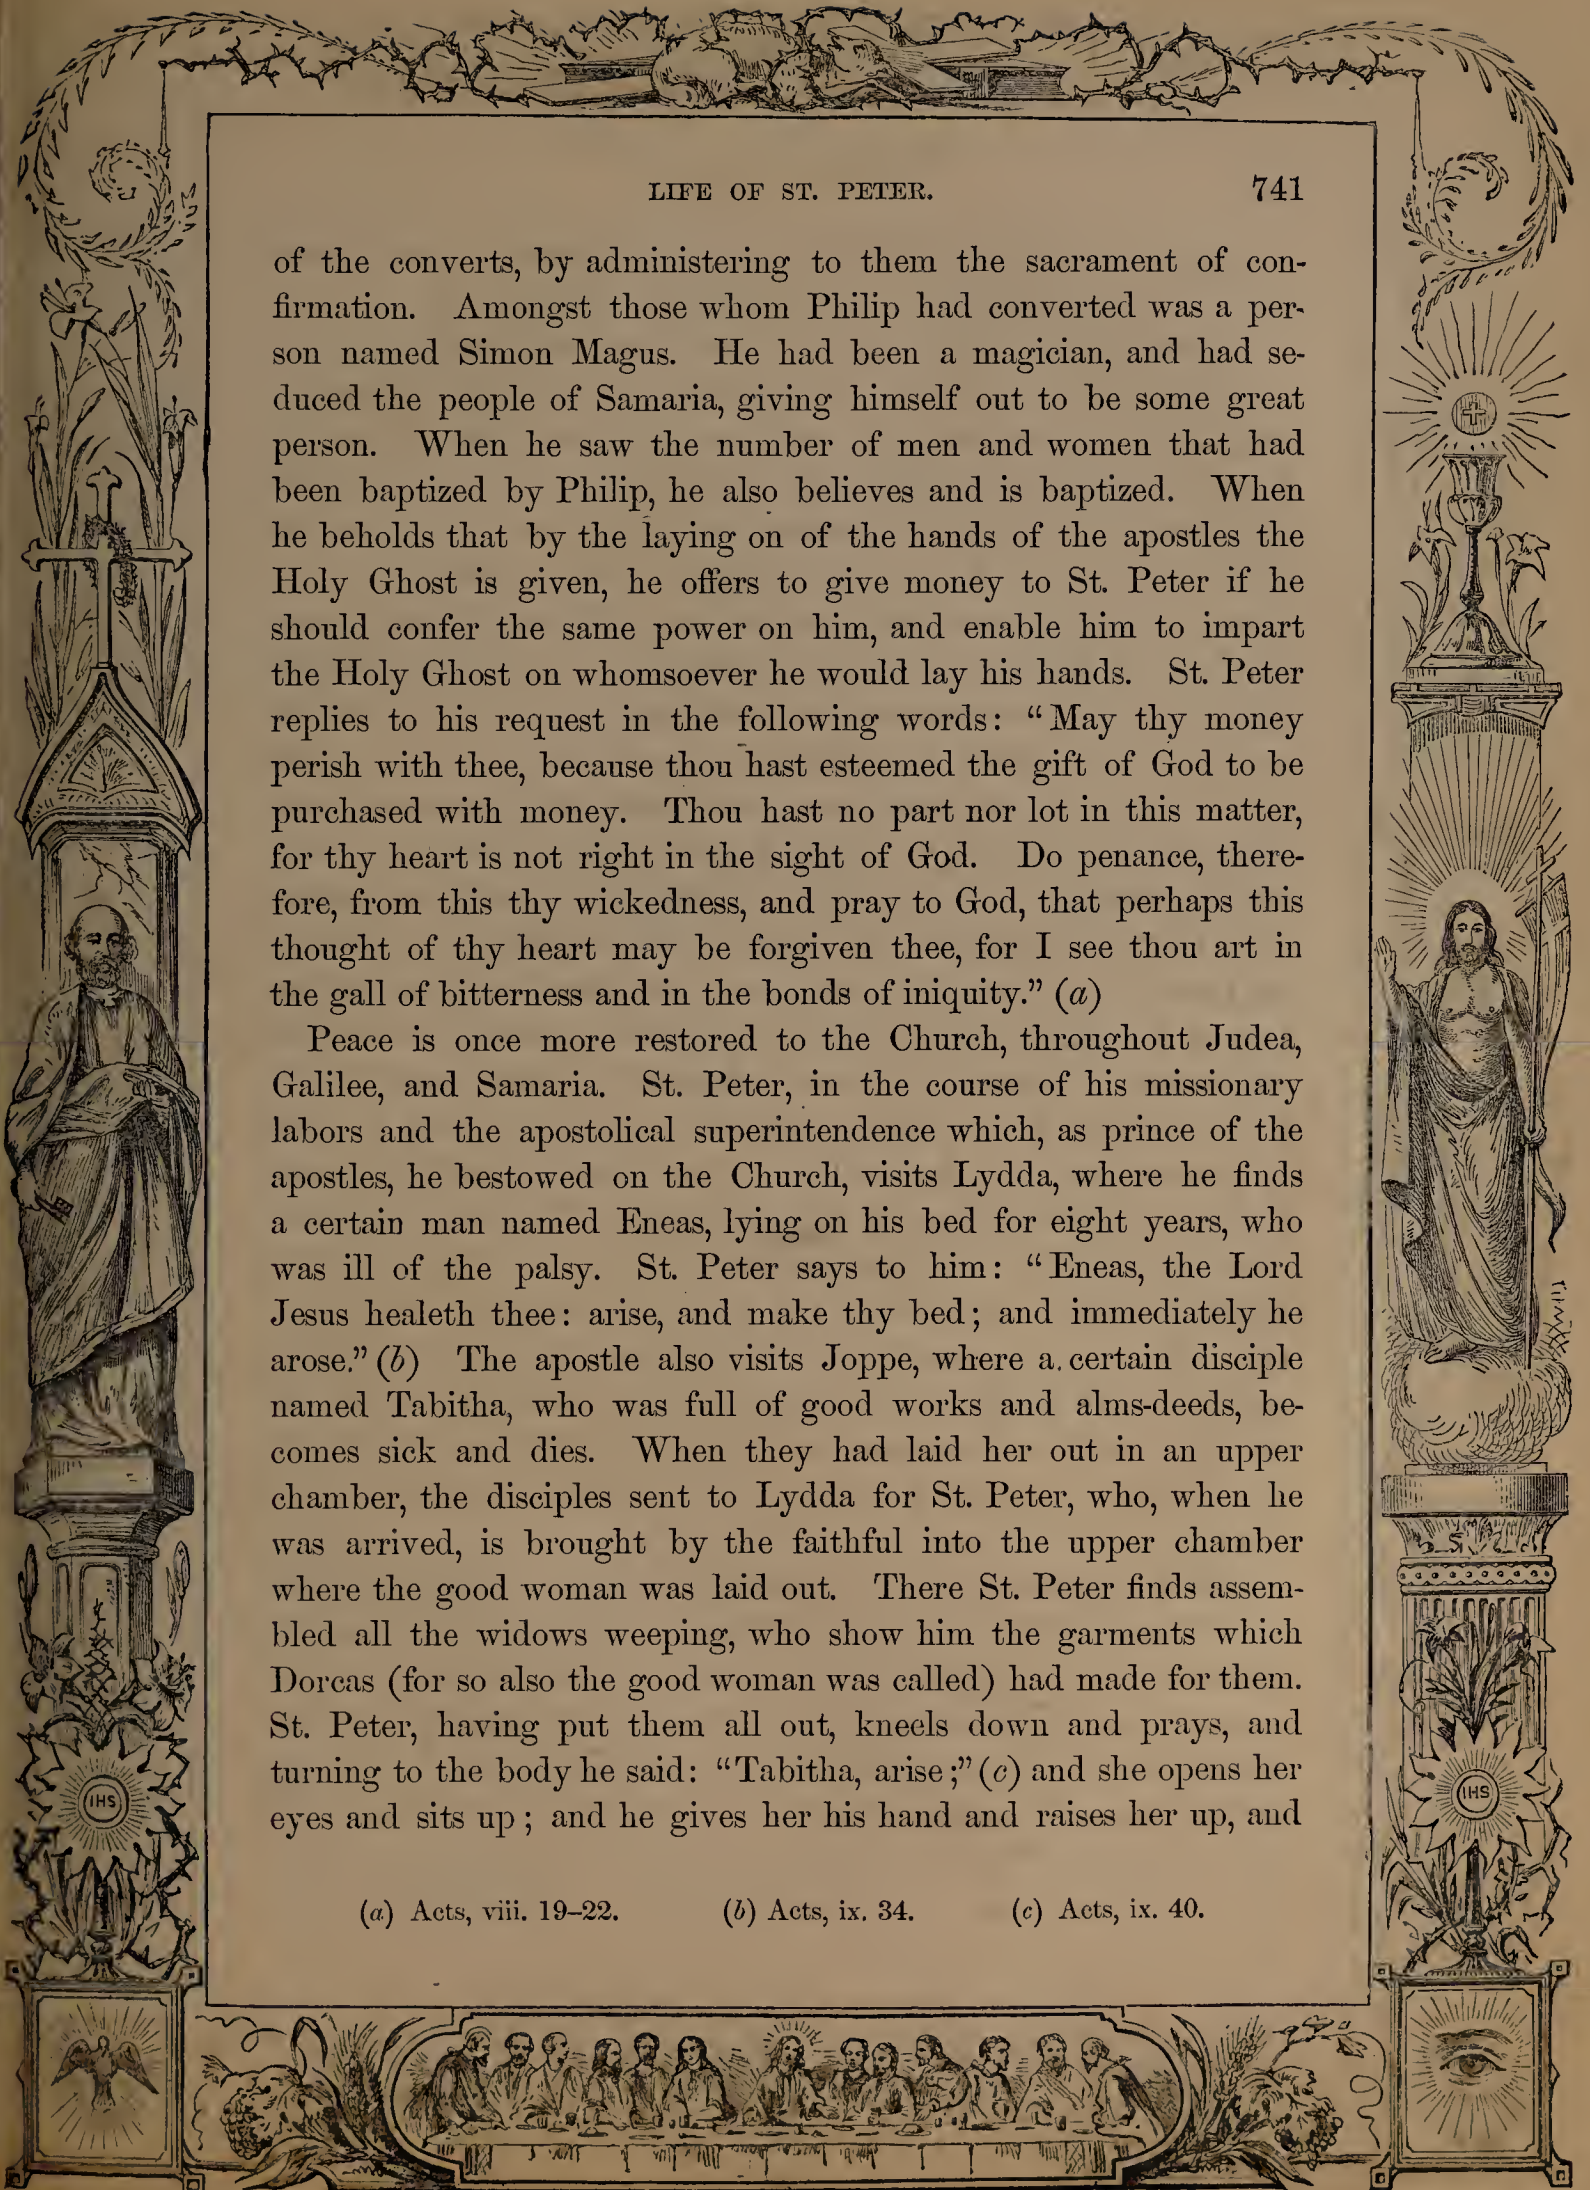 LIFE OF ST. PETER. 741
of the converts, by administering to them the sacrament of con-
firmation. Amongst those whom Philip had converted was a per-
son named Simon Magus. He had been a magician, and had se-
duced the people of Samaria, giving himself out to be some great
person. When he saw the number of men and women that had
been baptized by Philip, he also believes and is baptized. When
he beholds that by the laying on of the hands of the apostles the
Holy Ghost is given, he offers to give money to St. Peter if he
should confer the same power on him, and enable him to impart
the Holy Ghost on whomsoever he would lay his hands. St. Peter
replies to his request in the following words: “May thy money
perish with thee, because thou hast esteemed the gift of God to be
purchased with money. Thou hast no part nor lot in this matter,
for thy heart is not right in the sight of God. Do penance, there-
fore, from this thy wickedness, and pray to God, that perhaps this
thought of thy heart may be forgiven thee, for I see thou art in
the gall of bitterness and in the bonds of iniquity.” (a)
Peace is once more restored to the Church, throughout Judea,
Galilee, and Samaria. St. Peter, in the course of his missionary
labors and the apostolical superintendence which, as prince of the
apostles, he bestowed on the Church, visits Lydda, where he finds
a certain man named Eneas, lying on his bed for eight years, who
was ill of the palsy. St. Peter says to him: “Eneas, the Lord
Jesus healeth thee: arise, and make thy bed; and immediately he
arose.” (b) The apostle also visits Joppe, where a certain disciple
named Tabitha, who was full of good works and alms-deeds, be-
comes sick and dies. When they had laid her out in an upper
chamber, the disciples sent to Lydda for St. Peter, who, when he
was arrived, is brought by the faithful into the upper chamber
where the good woman was laid out. There St. Peter finds assem-
bled all the widows weeping, who show him the garments which
Dorcas (for so also the good woman was called) had made for them.
St. Peter, having put them all out, kneels down and prays, and
turning to the body he said: “Tabitha, arise;” (c) and she opens her
eyes and sits up; and he gives her his hand and raises her up, and
(a) Acts, viii. 19–22. (b) Acts, ix. 34. (c) Acts, ix. 40.
IHS
IHS